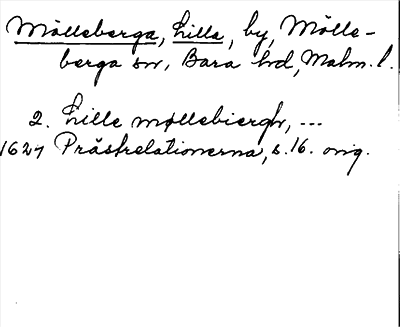 Mölleberga, Lilla, by, Mölle-
berga sn, Bara hd, Malm. l.
2. Lille møllebiergh, ...
1624 Prästrelationerna, s. 16. orig.